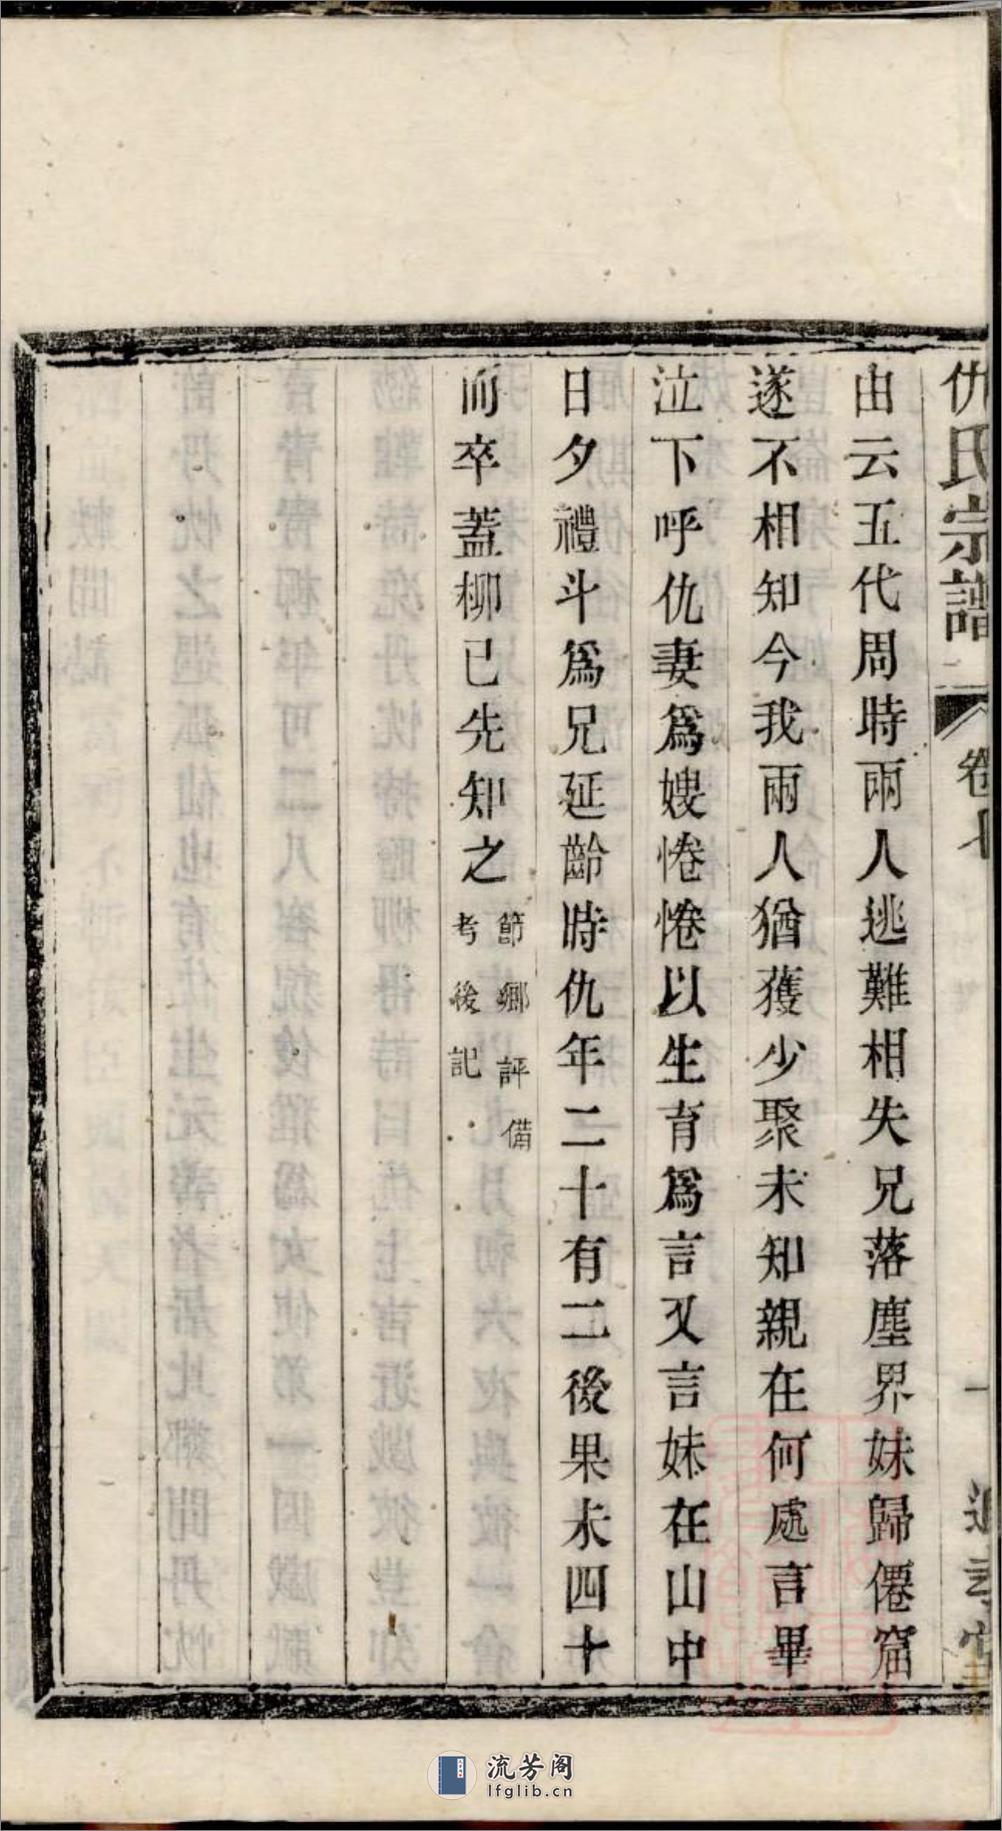 仇氏宗譜
卷七
一
由云五代周時兩人逃難相失兄落塵界妹歸僊窟
遂不相知今我兩人猶獲少聚未知親在何處言畢
泣下呼仇妻爲嫂惓惓以生育爲言又言妹在山中
日夕禮斗爲兄延齡時仇年二十有二後果未四十
而卒蓋柳已先知之
節鄉評備
考後記
流芳阁
lfglib.cn